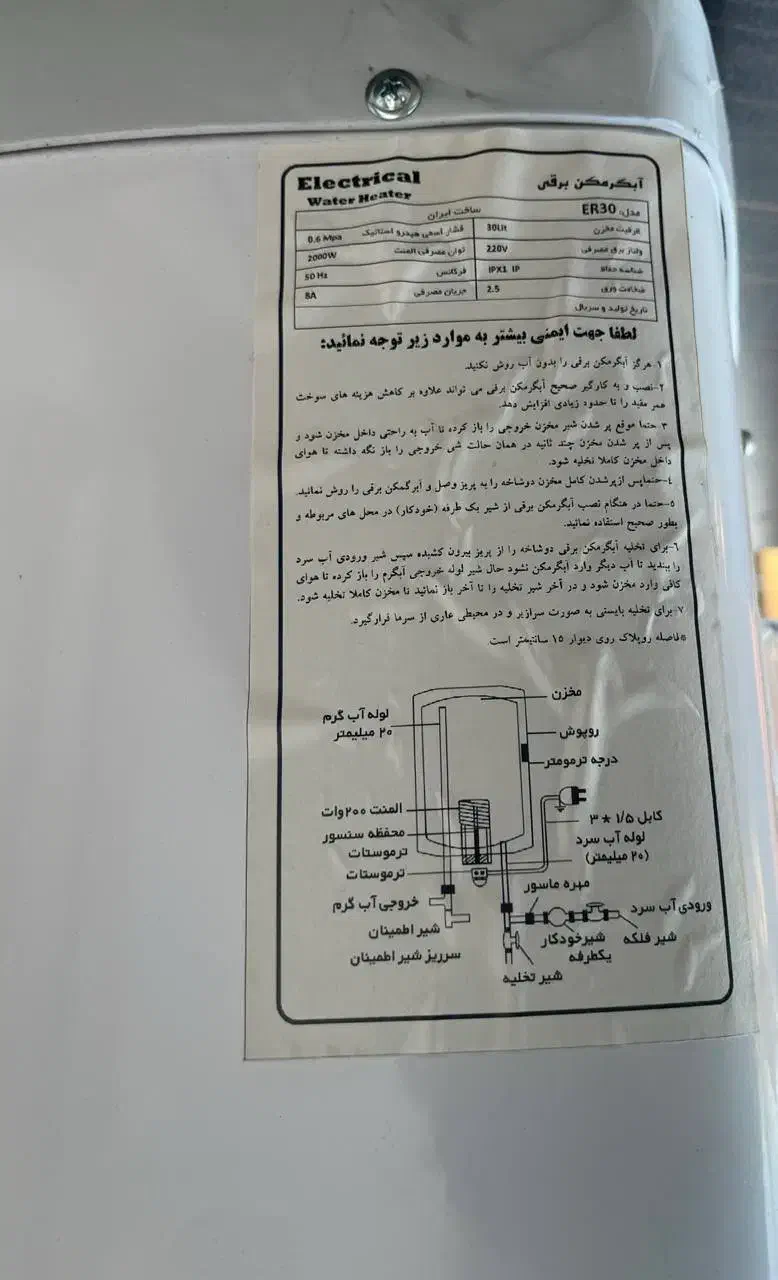 Electrical
Water Heater
آبگرمکن برقی
مدل: ER30 ساخت ایران
ظرفیت مخزن 30Lit فشار اسمی هیدرو استاتیک 0.6 Mpa
ولتاژ برق مصرفی 220V توان مصرفی المنت 2000W
شناسه حفاظ IPX1 IP فرکانس 50 Hz
ضخامت ورق 2.5 جریان مصرفی 8A
تاریخ تولید و سریال
لطفا جهت ایمنی بیشتر به موارد زیر توجه نمائید:
۱-هرگز آبگرمکن برقی را بدون آب روش نکنید.
۲-نصب و به کارگیر صحیح آبگرمکن برقی می تواند علاوه بر کاهش هزینه های سوخت
عمر مفید را تا حدود زیادی افزایش دهد.
۳ حتما موقع پر شدن شیر مخزن خروجی را باز کرده تا آب به راحتی داخل مخزن شود و
پس از پر شدن مخزن چند ثانیه در همان حالت شی خروجی را باز نگه داشته تا هوای
داخل مخزن کاملا تخلیه شود.
۴-حتماپس ازپرشدن کامل مخزن دوشاخه را به پریز وصل و آبرگمکن برقی را روش نمائید.
۵-حتما در هنگام نصب آبگرمکن برقی از شیر یک طرفه (خودکار) در محل های مربوطه و
بطور صحیح استفاده نمائید.
۶-برای تخلیه آبگرمکن برقی دوشاخه را از پریز بیرون کشیده سپس شیر ورودی آب سرد
را ببندید تا آب دیگر وارد آبگرمکن نشود حال شیر لوله خروجی آبگرم را باز کرده تا هوای
کافی وارد مخزن شود و در آخر شیر تخلیه را تا آخر باز نمائید تا مخزن کاملا تخلیه شود.
۷-برای تخلیه بایستی به صورت سرازیر و در محیطی عاری از سرما قرارگیرد.
*فاصله روپلاک روی دیوار ۱۵ سانتیمتر است.
مخزن
لوله آب گرم
۲۰ میلیمتر
روپوش
درجه ترمومتر
المنت ۲۰۰وات
کابل ۱/۵ * ۳
محفظه سنسور
ترموستات
لوله آب سرد
(۲۰ میلیمتر)
ترموستات
مهره ماسور
خروجی آب گرم
ورودی آب سرد
شیر اطمینان
شیر فلکه
شیرخودکار
یکطرفه
سرریز شیر اطمینان
شیر تخلیه